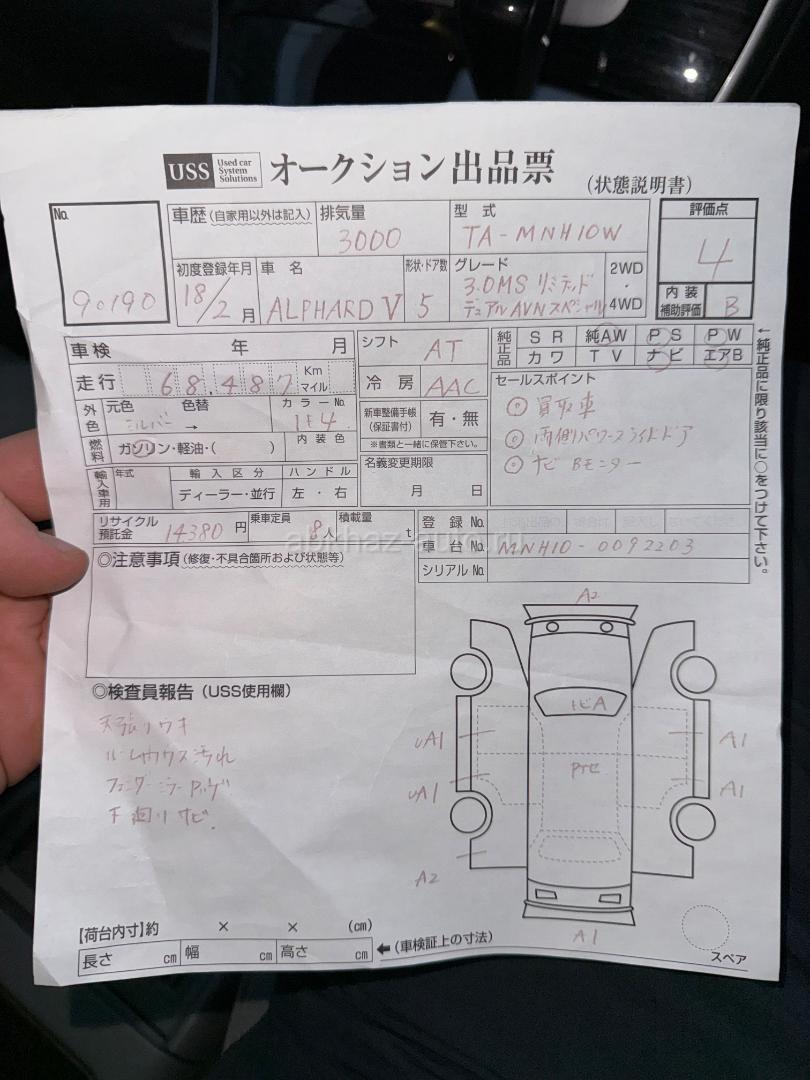 USS Used car System Solutions オークション出品票 (状態説明書)
No. 90190
車歴 (自家用以外は記入)
排気量 3000
型式 TA-MNH10W
評価点 4
初度登録年月 18/2月
車名 ALPHARD V
形状・ドア数 5
グレード 3.0MS リミテッド デュアルAVNスペシャル
2WD・4WD
内装補助評価 B
車検 年 月
シフト AT
純正品 SR 純AW PS PW
カワ TV ナビ エアB
走行 68,487 Km マイル
冷房 AAC
セールスポイント
◎ 買取車
◎ 両側パワースライドドア
◎ ナビ Bモニター
外色 元色 シルバー 色替 →
カラーNo. 1E4
新車整備手帳 (保証書付) 有・無
※書類と一緒に保管下さい。
燃料 ガソリン・軽油・( )
内装色
輸入車用 年式 輸入区分 ハンドル
ディーラー・並行 左・右
名義変更期限
月 日
←純正品に限り該当に○をつけて下さい。
リサイクル預託金 14380円
乗車定員 8人
積載量 t
登録No.
車台No. MNH10-0092203
シリアルNo.
◎注意事項 (修復・不具合箇所および状態等)
◎検査員報告 (USS使用欄)
天張リウキ
ルームハウス汚れ
フェンダーミラーPハゲ
下廻りサビ
A2
トビA
UA1
A1
UA1
A1
A2
A1
【荷台内寸】約 × × (cm)
長さ cm 幅 cm 高さ cm ←(車検証上の寸法)
スペア